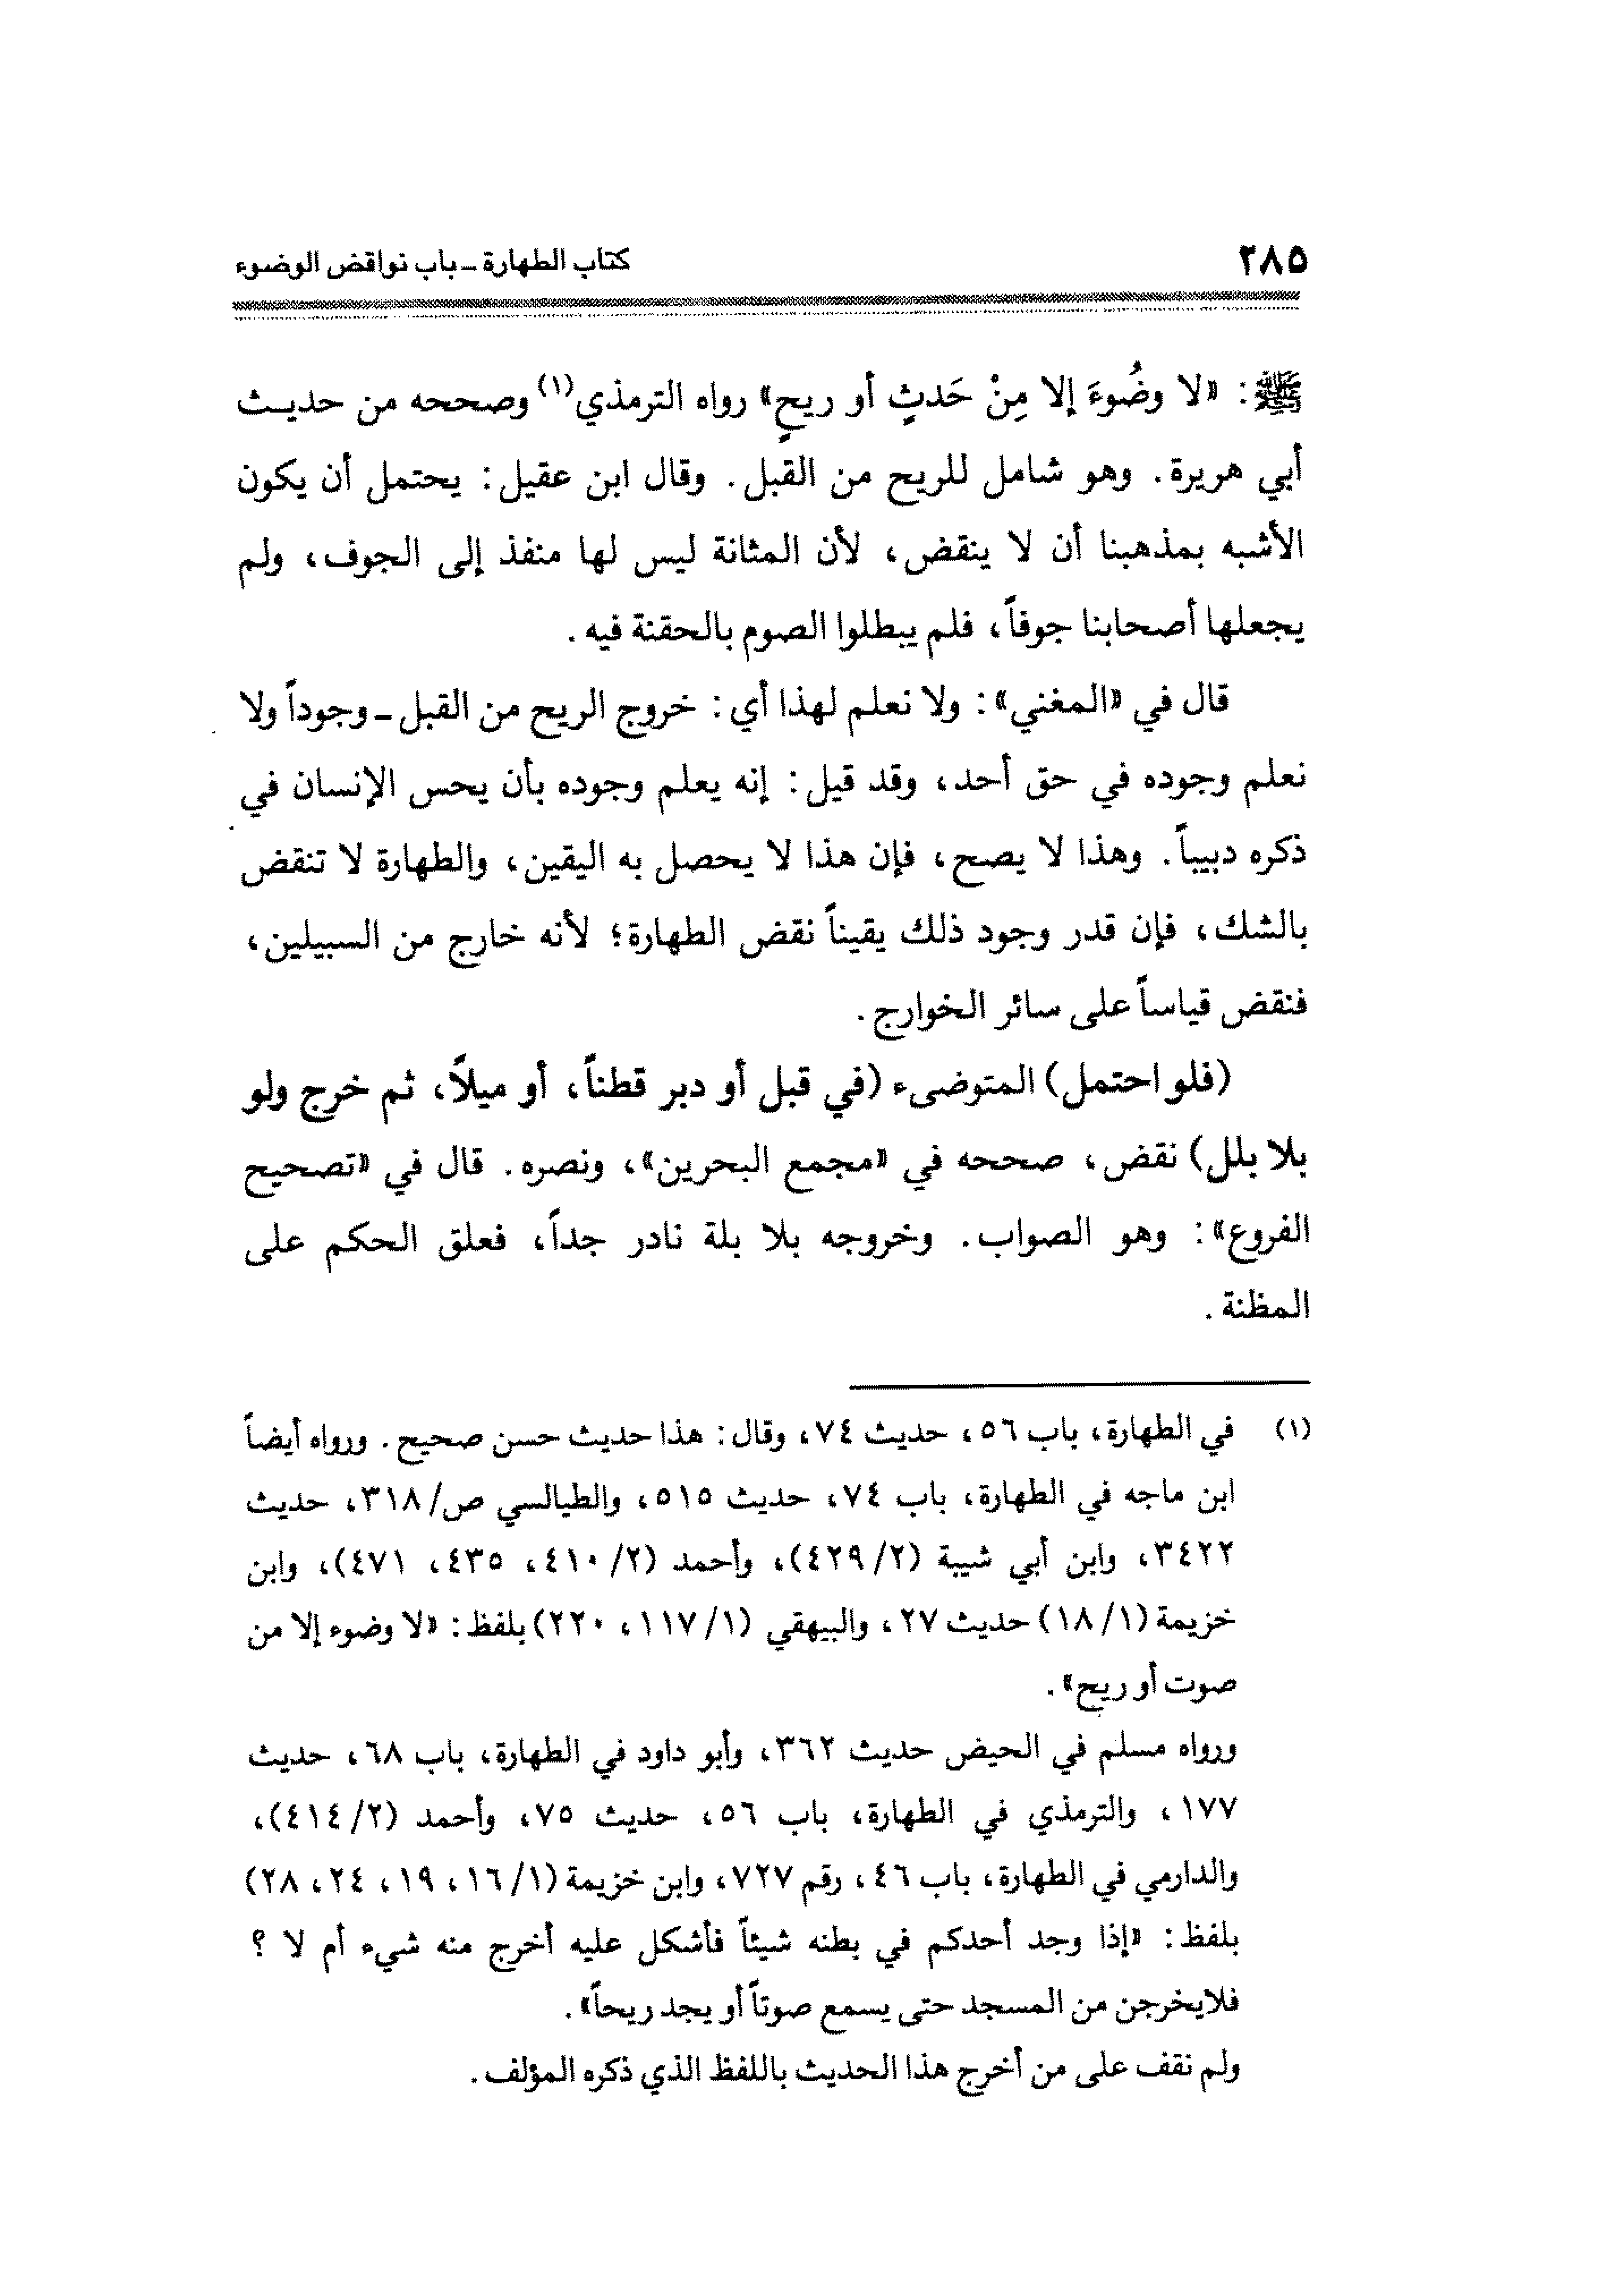 ٢٨٥
كتاب الطهارة ـ باب نواقض الوضوء
ﷺ: «لا وضُوءَ إلا مِنْ حَدثٍ أو ريحٍ» رواه الترمذي(١) وصححه من حديـث
أبي هريرة. وهو شامل للريح من القبل. وقال ابن عقيل: يحتمل أن يكون
الأشبه بمذهبنا أن لا ينقض، لأن المثانة ليس لها منفذ إلى الجوف، ولم
يجعلها أصحابنا جوفاً، فلم يبطلوا الصوم بالحقنة فيه.
قال في «المغني»: ولا نعلم لهذا أي: خروج الريح من القبل ـ وجوداً ولا
نعلم وجوده في حق أحد، وقد قيل: إنه يعلم وجوده بأن يحس الإنسان في
ذكره دبيباً. وهذا لا يصح، فإن هذا لا يحصل به اليقين، والطهارة لا تنقض
بالشك، فإن قدر وجود ذلك يقيناً نقض الطهارة؛ لأنه خارج من السبيلين،
فنقض قياساً على سائر الخوارج.
(فلو احتمل) المتوضىء (في قبل أو دبر قطناً، أو ميلاً، ثم خرج ولو
بلا بلل) نقض، صححه في «مجمع البحرين»، ونصره. قال في «تصحيح
الفروع»: وهو الصواب. وخروجه بلا بلة نادر جداً، فعلق الحكم على
المظنة.
(١) في الطهارة، باب ٥٦، حديث ٧٤، وقال: هذا حديث حسن صحيح. ورواه أيضاً
ابن ماجه في الطهارة، باب ٧٤، حديث ٥١٥، والطيالسي ص/٣١٨، حديث
٣٤٢٢، وابن أبي شيبة (٤٢٩/٢)، وأحمد (٤١٠/٢، ٤٣٥، ٤٧١)، وابن
خزيمة (١٨/١) حديث ٢٧، والبيهقي (١١٧/١، ٢٢٠) بلفظ: «لا وضوء إلا من
صوت أو ريح».
ورواه مسلم في الحيض حديث ٣٦٢، وأبو داود في الطهارة، باب ٦٨، حديث
١٧٧، والترمذي في الطهارة، باب ٥٦، حديث ٧٥، وأحمد (٤١٤/٢)،
والدارمي في الطهارة، باب ٤٦، رقم ٧٢٧، وابن خزيمة (١٦/١، ١٩، ٢٤، ٢٨)
بلفظ: «إذا وجد أحدكم في بطنه شيئاً فأشكل عليه أخرج منه شيء أم لا ؟
فلايخرجن من المسجد حتى يسمع صوتاً أو يجد ريحاً».
ولم نقف على من أخرج هذا الحديث باللفظ الذي ذكره المؤلف.